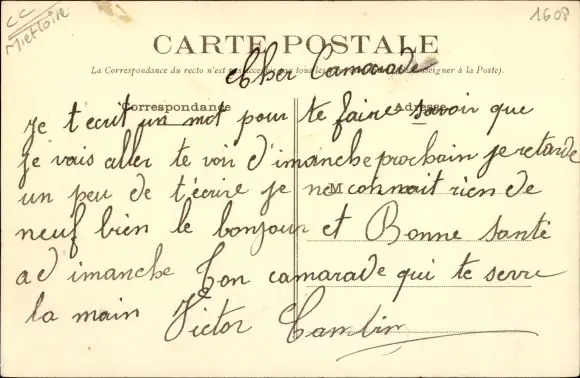 CC
1608
CARTE POSTALE
(La Correspondance du recto n'est pas acceptée par tous les
seigner à la Poste).
Cher Camarade
Correspondance
Adresse
Je t'écrit un mot pour te faire savoir que
je vais aller te voir d'imanche prochain je retarde
un peu de t'écrire je ne connait rien de
M
neuf bien le bonjour et Bonne santé
a d imanche Ton camarade qui te serre
la main Victor